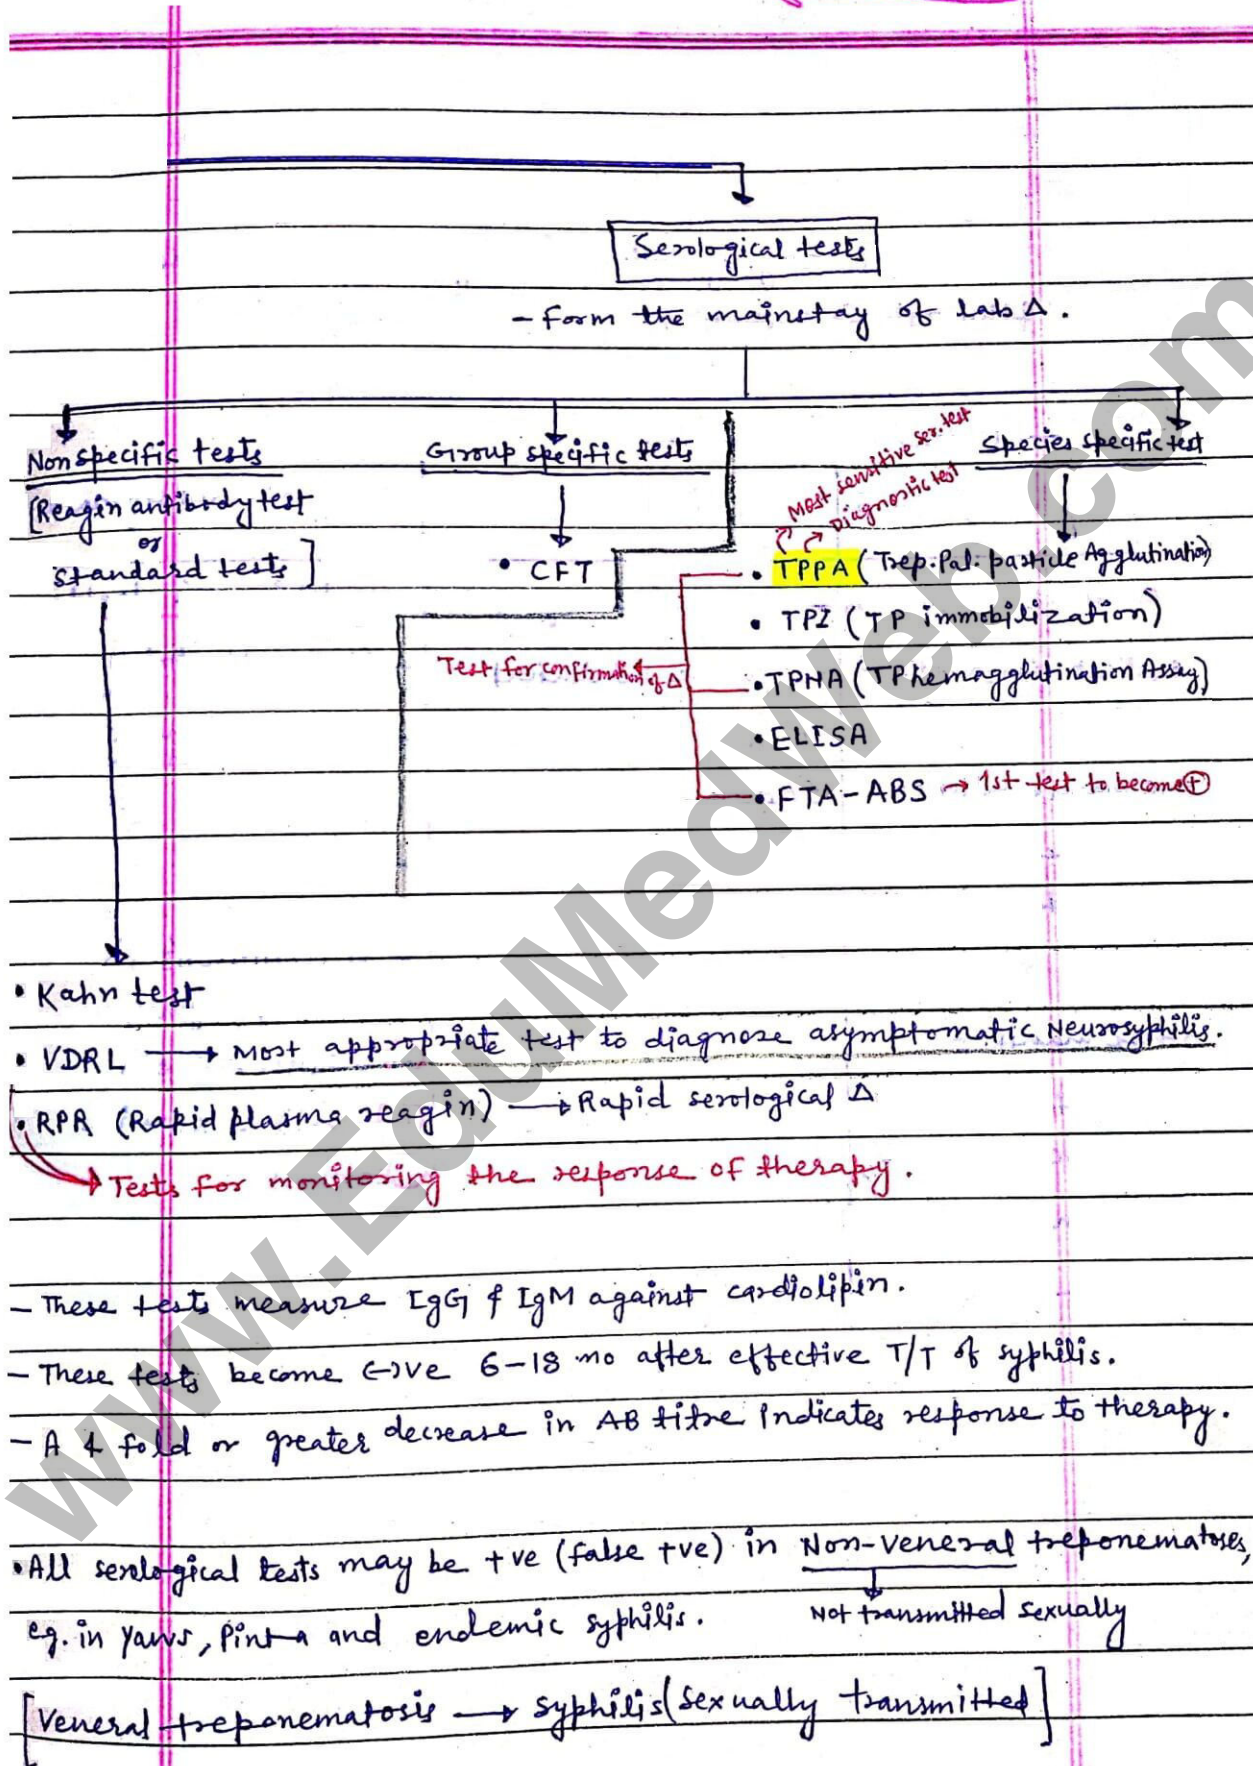 Serological tests
- Form the mainstay of lab Δ.
Nonspecific tests
[Reagin antibody test
or
standard tests]
Group specific tests
• CFT
Species specific test
Most sensitive ser. test
Diagnostic test
• TPPA (Trep. Pal. particle Agglutination)
• TPI (TP immobilization)
Test for confirmation of Δ
• TPHA (TP hemagglutination Assay)
• ELISA
• FTA-ABS → 1st test to become ⊕
• Kahn test
• VDRL → Most appropriate test to diagnose asymptomatic Neurosyphilis.
• RPR (Rapid plasma reagin) → Rapid serological Δ
→ Tests for monitoring the response of therapy.
- These tests measure IgG & IgM against cardiolipin.
- These tests become (-)ve 6-18 mo after effective T/T of syphilis.
- A 4 fold or greater decrease in AB titre indicates response to therapy.
• All serological tests may be +ve (false +ve) in Non-veneral treponematoses,
Not transmitted sexually
eg. in Yaws, Pinta and endemic syphilis.
[Veneral treponematosis → syphilis (sexually transmitted]
www.EduMedWeb.com